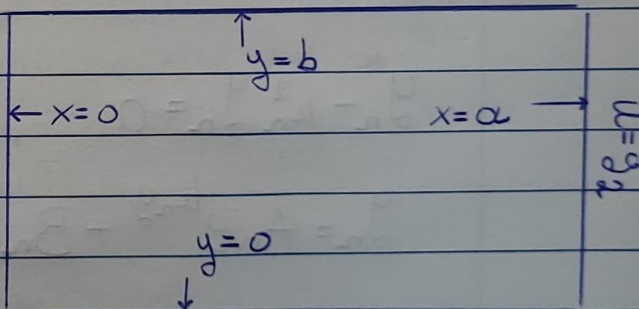 y=b
x=0 x=a
u=g₂
y=0